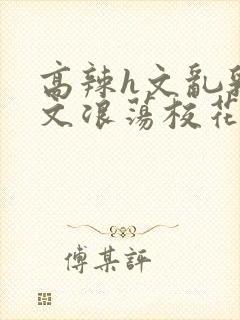 高辣h文乱乳
文浪荡校花
傅某評